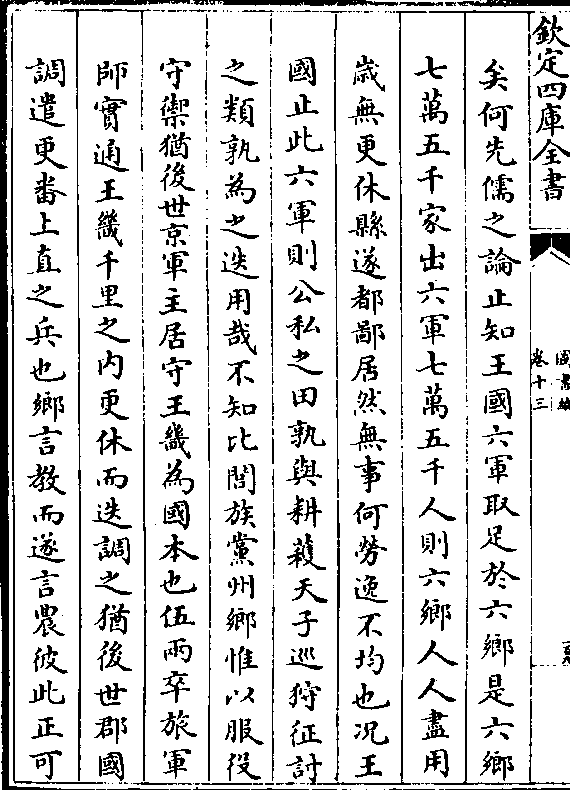 欽定四庫全書
圖書編
卷十三
矣何先儒之論止知王國六軍取足於六鄉是六鄉
七萬五千家出六軍七萬五千人則六鄉人人盡用
歲無更休縣遂都鄙居然無事何勞逸不均也况王
國止此六軍則公私之田孰與耕穫天子巡狩征討
之類孰為之迭用哉不知比閭族黨州鄉惟以服役
守禦猶後世京軍主居守王畿為國本也伍兩卒旅軍
師實通王畿千里之內更休而迭調之猶後世郡國
調遣更番上直之兵也鄉言教而遂言農彼此正可